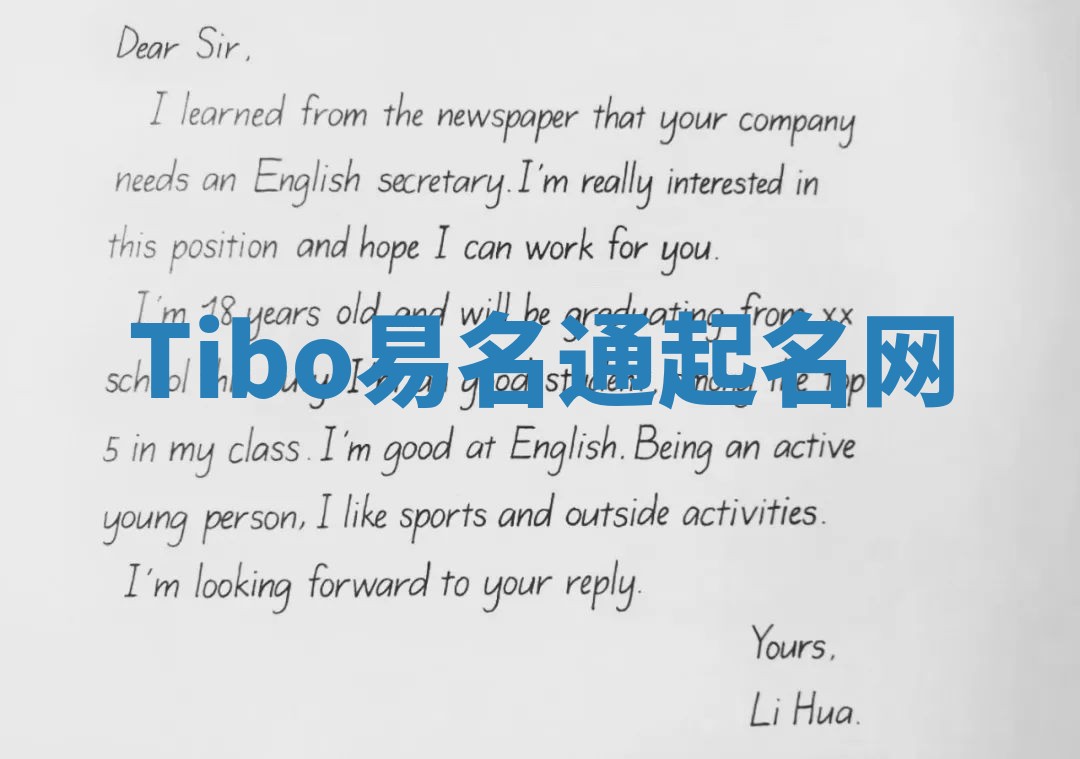 Dear Sir,
I learned from the newspaper that your company
needs an English secretary. I'm really interested in
this position and hope I can work for you.
I'm 18 years old and will be graduating from xx
Tibo易名通起名网
school I'm a good student, among the top
5 in my class. I'm good at English. Being an active
young person, I like sports and outside activities.
I'm looking forward to your reply.
Yours,
Li Hua.